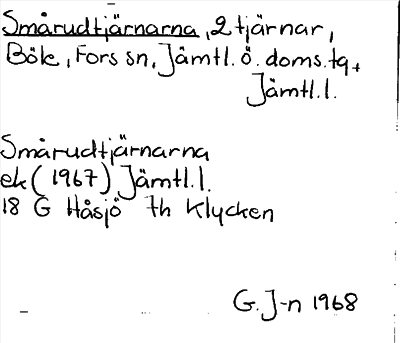 Smårudtjärnarna, 2 tjärnar,
Böle, Fors sn, Jämtl. ö. doms. tg,
Jämtl.l.
Smårudtjärnarna
ek (1967) Jämtl.l.
18 G Håsjö 7h Klycken
G. J-n 1968